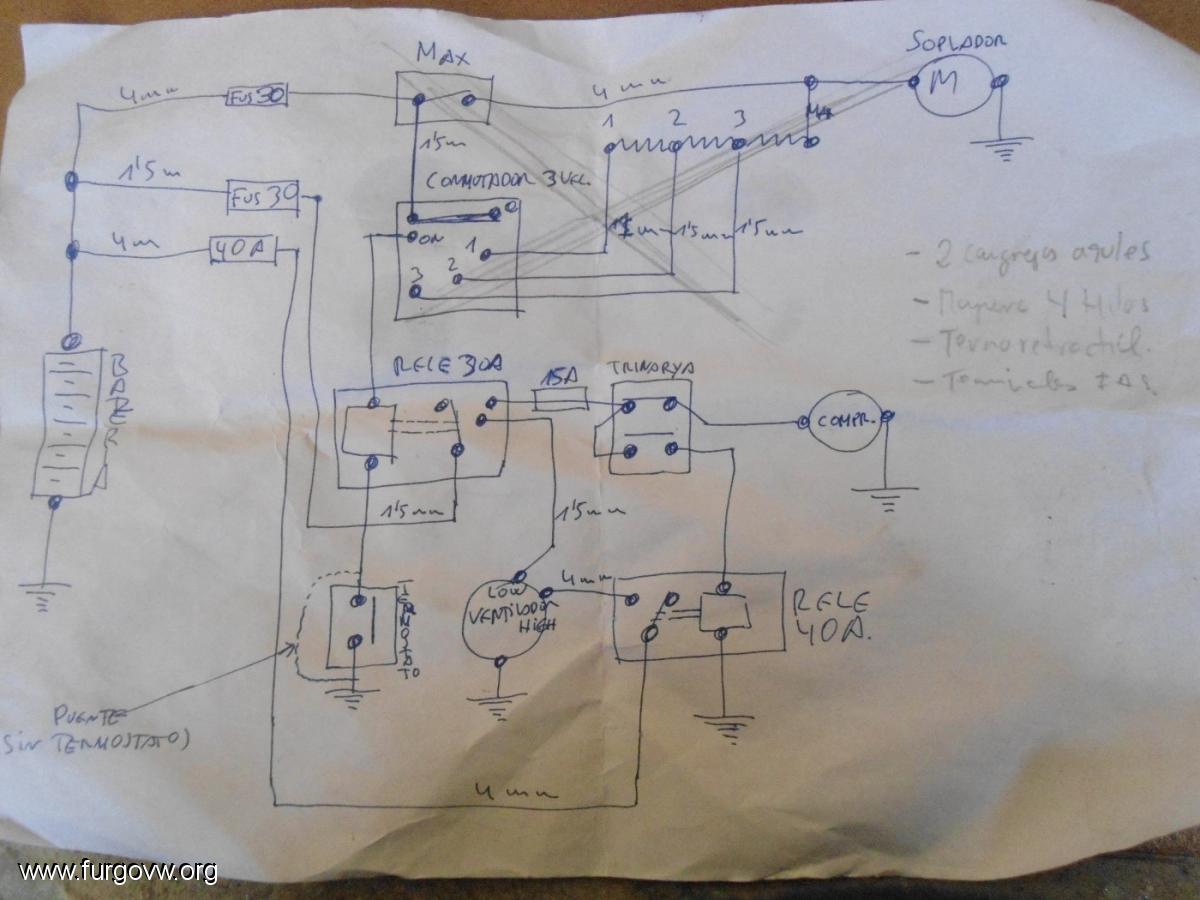 MAX
SOPLADOR
4mm
FUS 30
4mm
M
1'5m
1 2 3 MAX
1'5m
FUS 30
CONMUTADOR 3 VEL.
0
ON
1
2
3
1'5m 1'5m
4m
40A
- 2 cangrejos azules
- Manguera 4 Hilos
- Termoretractil.
- Terminales
BATERIA
RELE 30A
15A
TRINARYA
COMPR.
1'5mm
1'5mm
TERMOSTATO
LOW
VENTILADOR
HIGH
4mm
RELE
40A.
PUENTE
(SIN TERMOSTATO)
4mm
www.furgovw.org